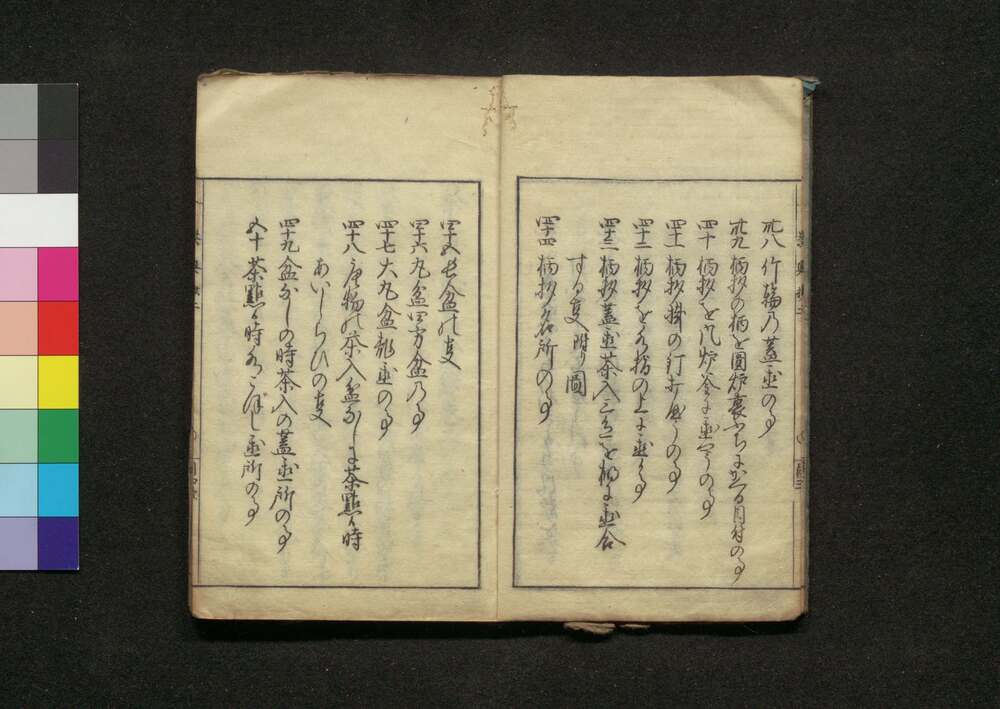 卅八 竹輪の蓋置の事
卅九 柄杓の柄を圍炉裏ふちに置る目付の事
四十 柄杓を風炉釜に置やうの事
四十一 柄杓掛の釘打やうの事
四十二 柄杓を名指の上に置く事
四十三 柄杓蓋置茶入三色を棚に置合
する事 附り圖
四十四 柄杓名所の事
四十五 長盆の事
四十六 丸盆四方盆の事
四十七 大丸盆 置の事
四十八 唐物の茶入盆なしに茶點る時
あいしらひの事
四十九 盆なしの時茶入の蓋置所の事
五十 茶點る時水こぼし置所の事